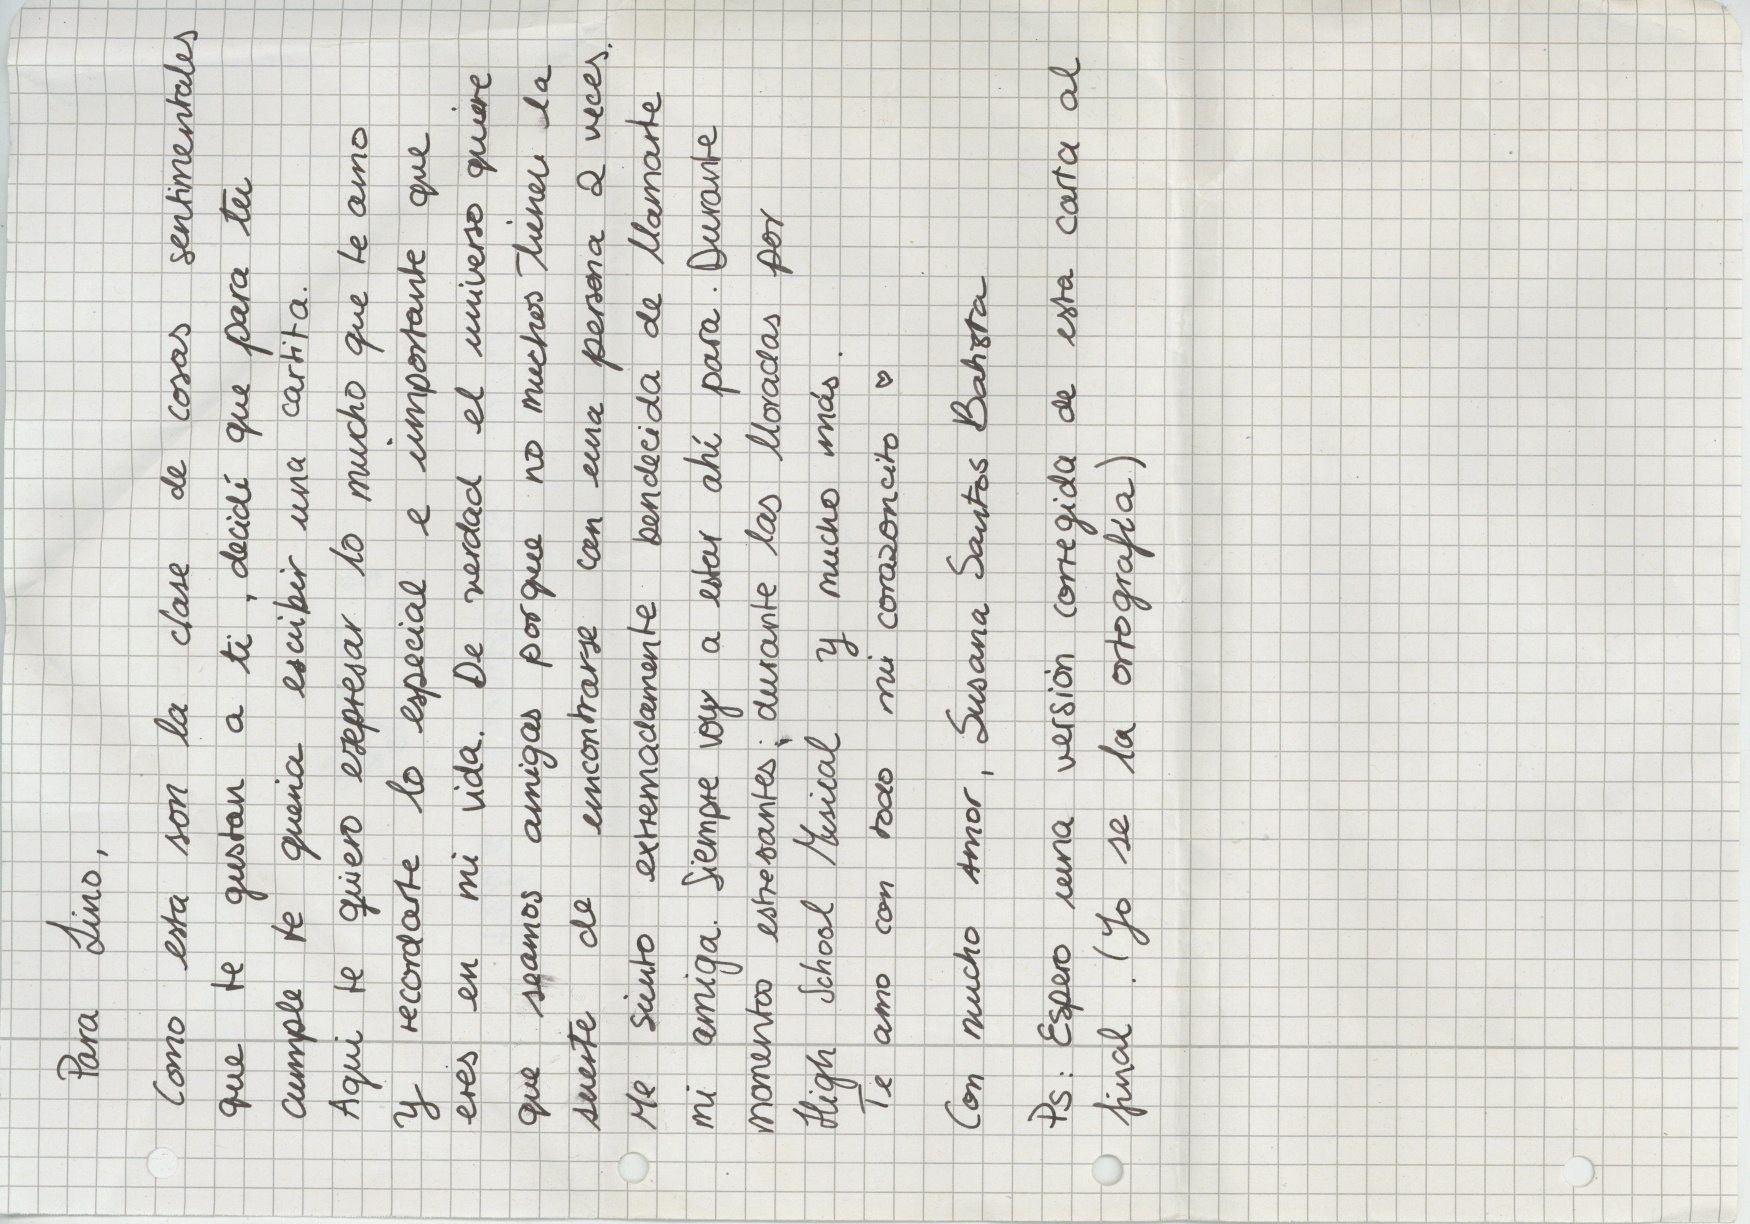 Para Lino,
Como esta son la clase de cosas sentimentales
que te gustan a ti, decidí que para tu
cumple te queria escribir una cartita.
Aqui te quiero expresar lo mucho que te amo
y recordarte lo especial e importante que
eres en mi vida. De verdad el universo quiere
que seamos amigas porque no muchos tienen la
suerte de encontrarse con una persona 2 veces.
Me siento extremadamente bendecida de llamarte
mi amiga. Siempre voy a estar ahí para. Durante
momentos estresantes, durante las lloradas por
High School Musical y mucho más.
Te amo con todo mi corazoncito ♡
Con mucho Amor, Susana Santos Batista
Ps: Espero una versión corregida de esta carta al
final. (Yo se la ortografía)